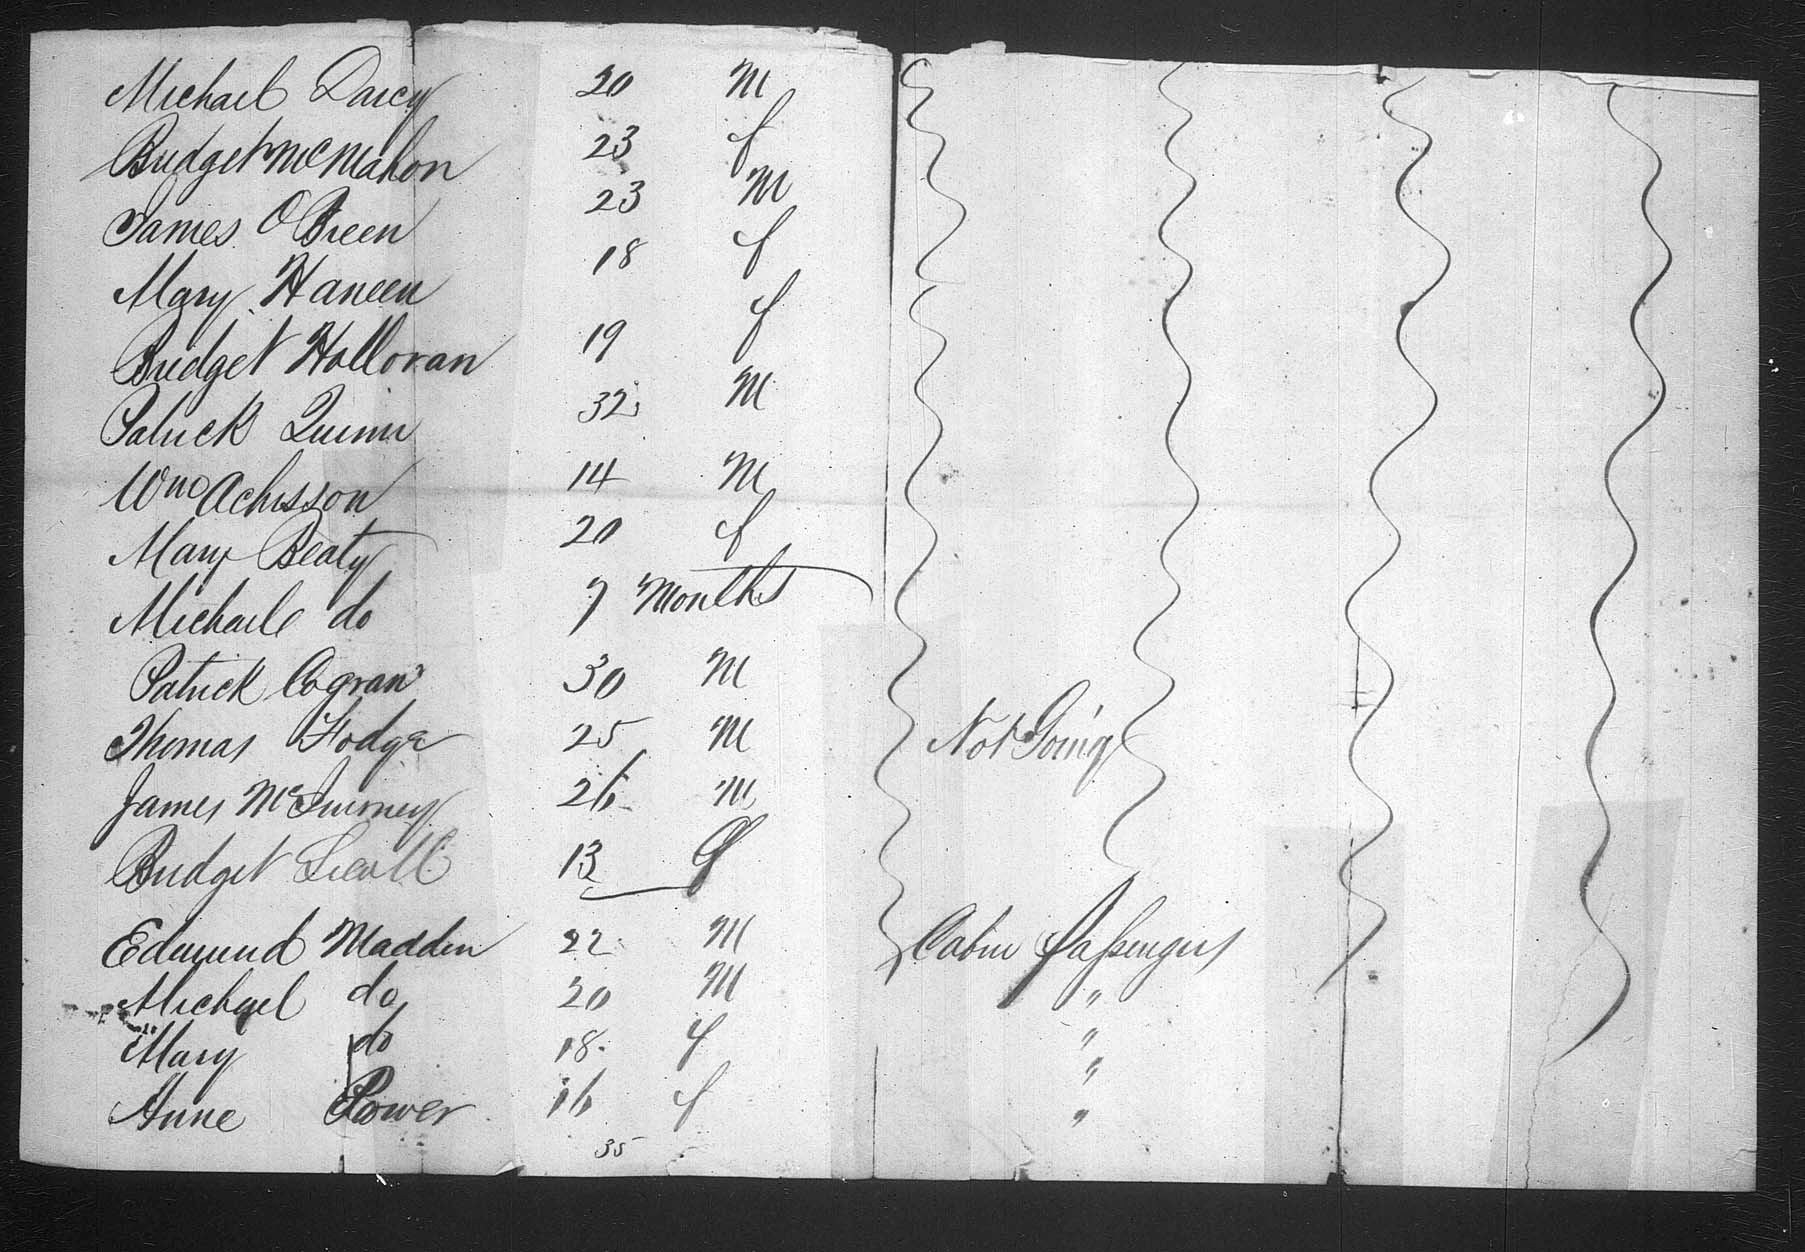 Michael Darcy 20 M
Bridget McMahon 23 f
James O Breen 23 M
Mary Haneen 18 f
Bridget Holloran 19 f
Patrick Quinn 32 M
Wm Achisson 14 M
Mary Beaty 20 f
Michael do 7 Months
Patrick Cogran 30 M
Thomas Hodge 25 M Not Going
James McInurney 26 M
Bridget 13 f
Edmund Madden 22 M Cabin Passengers
Michael do 20 M "
Mary do 18 f " "
Anne Power 16 f "
35